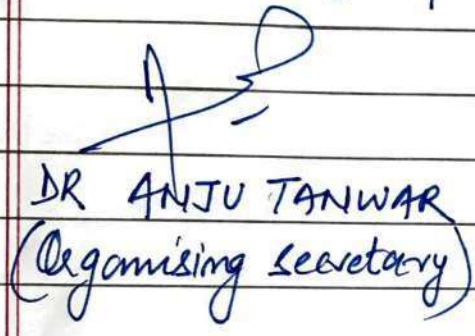 DR ANJU TANWAR
(Organising secretary)